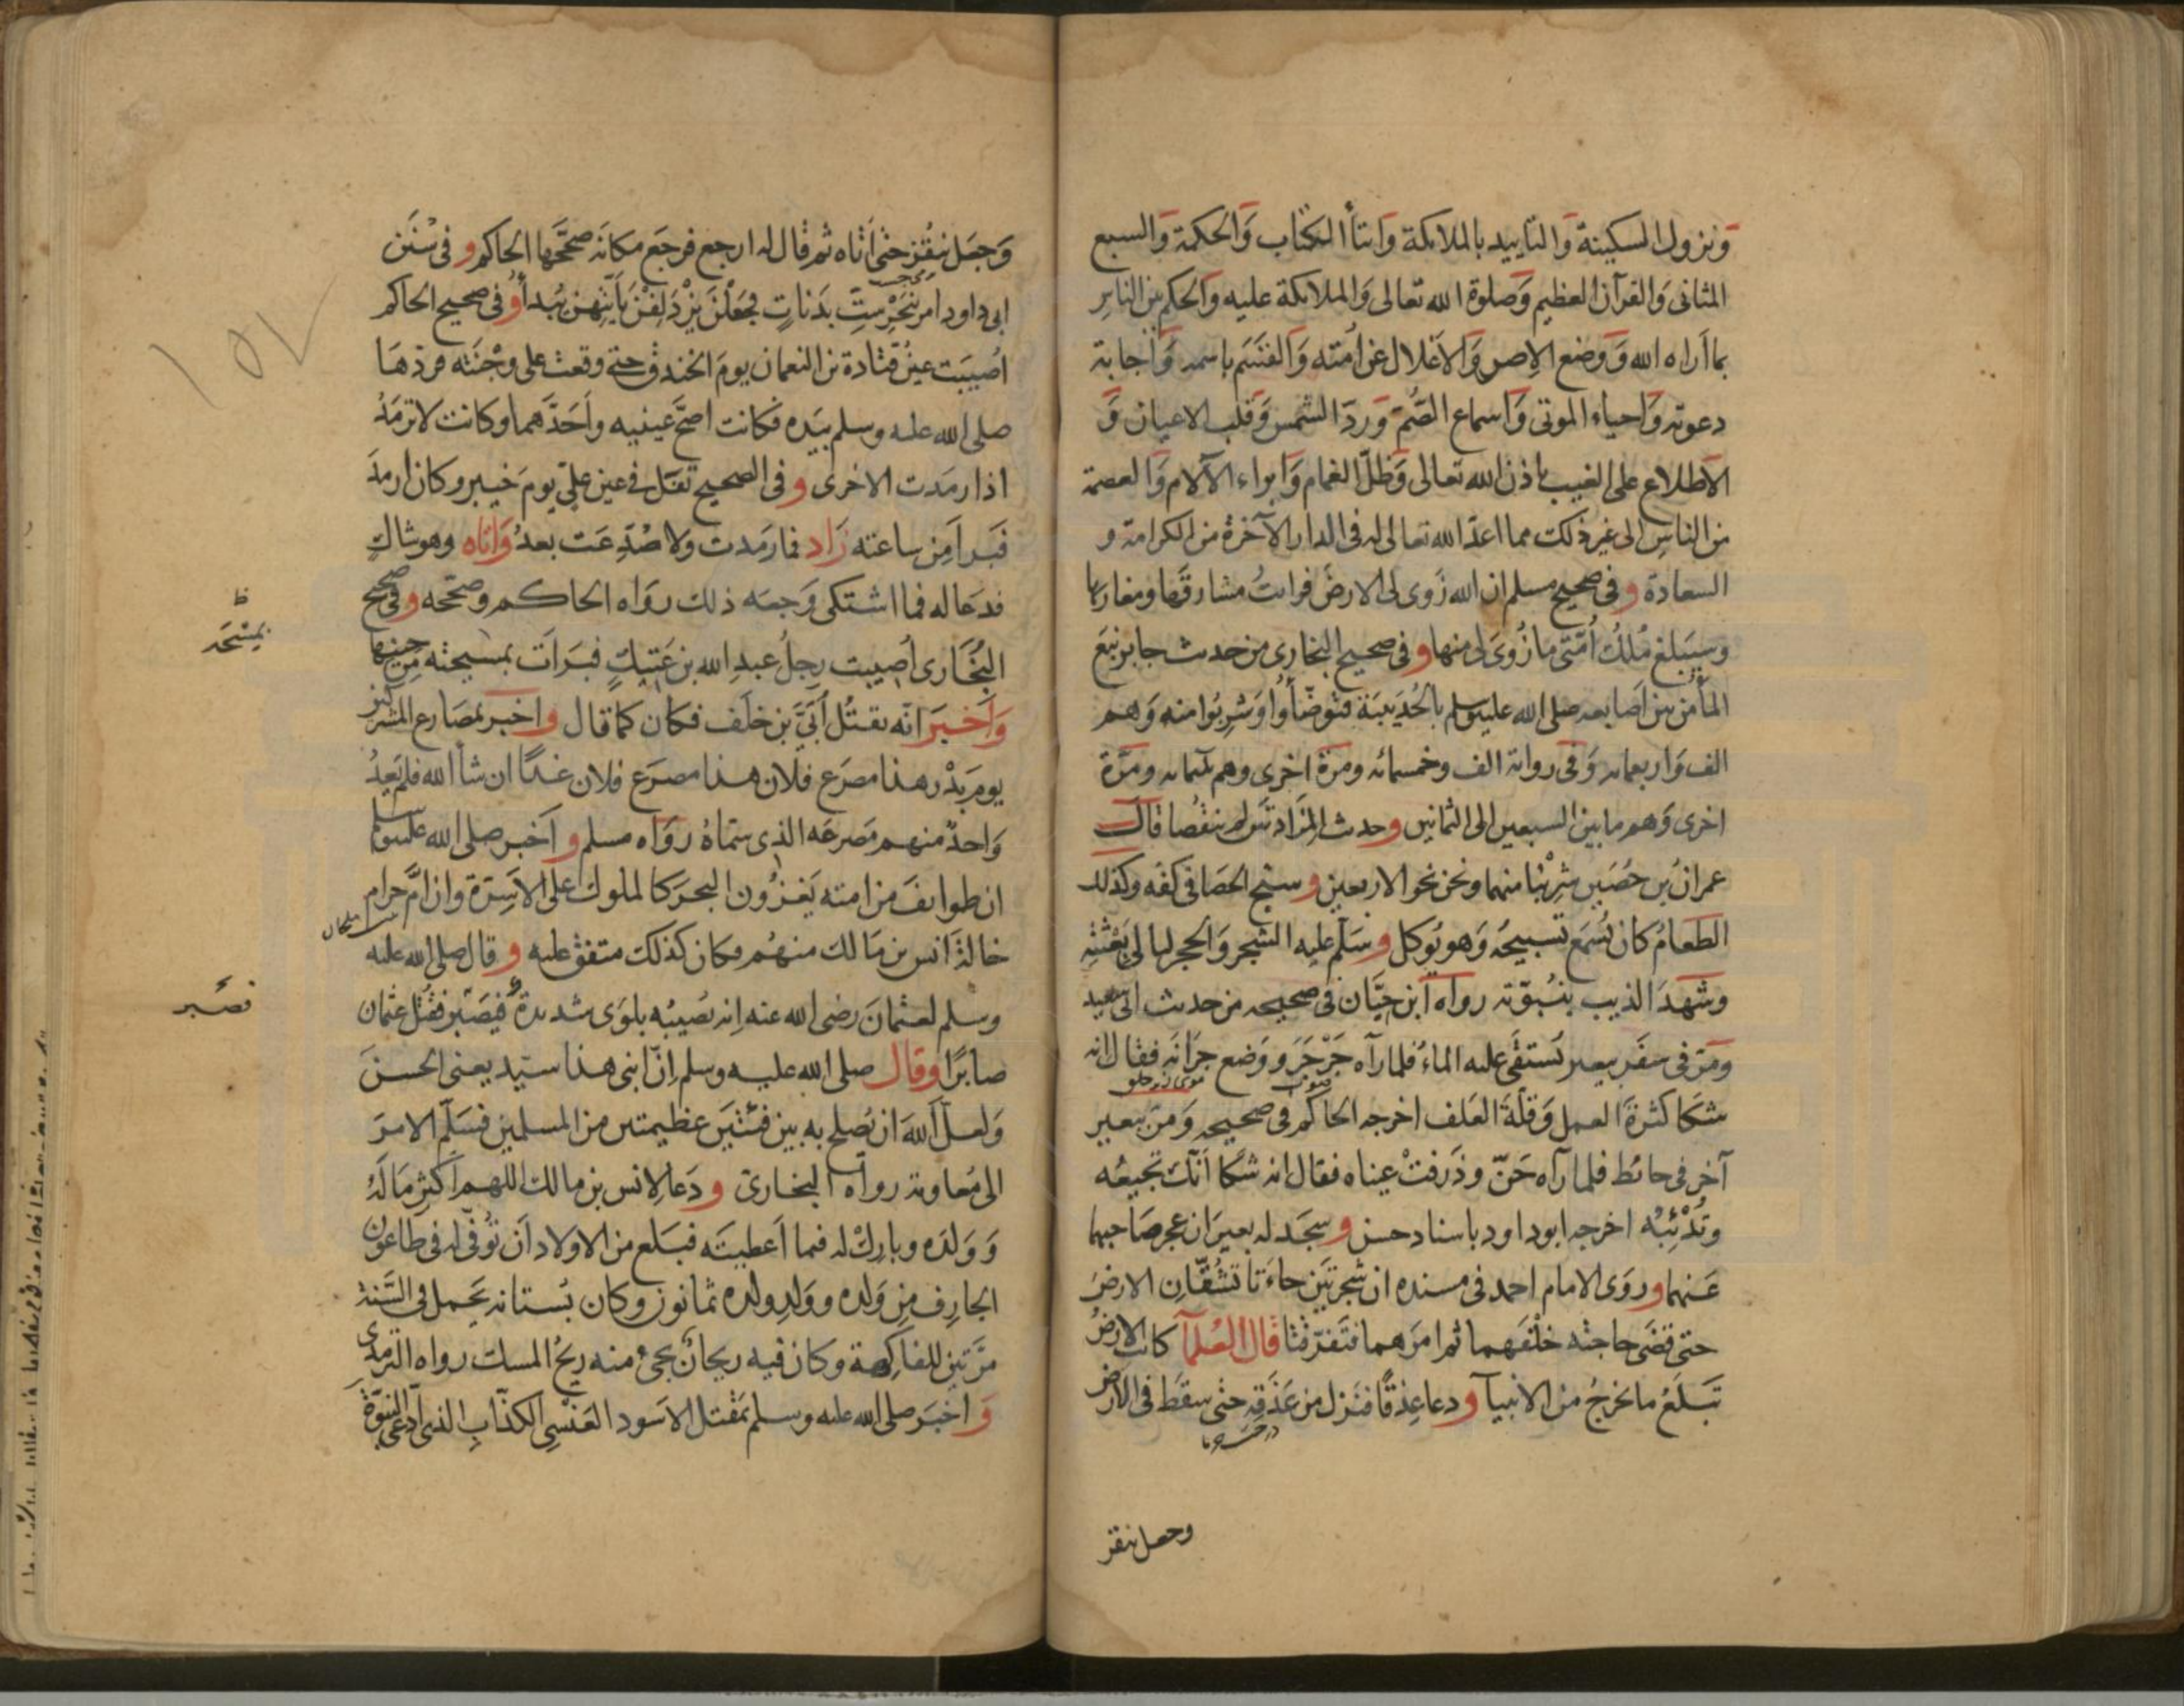 ونزول السكينة والتاييد بالملائكة وايتاأ الكتاب والحكمة والسبع
المثاني والقرآن العظيم وصلوة الله تعالى والملائكة عليه والحكم بين الناس
بما أراه الله ووضع الإصر والاغلال عن أمته والقسم باسمه واجابة
دعوته واحياء الموتى واسماع الصم ورد الشمس وقلب الاعيان و
الاطلاع على الغيب باذن الله تعالى وظل الغمام وابراء الآلام والعصمة
من الناس الى غير ذلك مما اعد الله تعالى له فى الدار الآخرة من الكرامة و
السعادة وفى صحيح مسلم ان الله زوى لى الارض فرايت مشارقها ومغاربها
وسيبلغ ملك أمتى ما زوى لى منها وفى صحيح البخارى من حديث جابر نبع
الماء من بين اصابعه صلى الله عليه وسلم بالحديبية فتوضأوا وشربوا منه وهم
الف واربعمايه وفى رواية الف وخمسمائه ومرة اخرى وهم ثلثمايه ومرة
اخرى وهم ما بين السبعين الى الثمانين وحديث المزادتين لم ينقصا قال
عمران بن حصين شربنا منهما ونحن نحو الاربعين وسبح الحصا فى كفه وكذلك
الطعام كان يسمع تسبيحه وهو يوكل وسلم عليه الشجر والحجر ليالى بعثته
وشهد الذيب بنبوته رواه ابن حبان فى صحيحه من حديث ابى سعيد
ومر فى سفر ببعير يستقى عليه الماء فلما رآه جرجر ووضع جرانه فقال انه
شكا كثرة العمل وقلة العلف اخرجه الحاكم فى صحيحه ومر ببعير
آخر فى حائط فلما رآه حن وذرفت عيناه فقال انه شكا انك تجيعه
وتدئبه اخرجه ابو داود باسناد حسن وسجد له بعيران عجز صاحبهما
عنهما وروى الامام احمد فى مسنده ان شجرتين جاءتا تشقان الارض
حتى قضى حاجته خلفهما ثم امرهما فتفرقتا قال العلمآ كانت الارض
تبلع ما يخرج من الانبيآ ودعا عذقا فنزل من عذقه حتى سقط فى الارض
وجعل ينقز
وجعل ينقز حتى اتاه ثم قال له ارجع فرجع مكانه صححها الحاكم وفى سنن
ابى داود امر بنحر ست بدنات فجعلن يزدلفن بأيتهن يبدأ وفى صحيح الحاكم
اصيبت عين قتادة بن النعمان يوم الخندق حتى وقعت على وجنته فردها
صلى الله عليه وسلم بيده فكانت اصح عينيه واحدهما وكانت لا ترمد
اذا رمدت الاخرى وفى الصحيح تفل فى عين على يوم خيبر وكان ارمد
فبرا من ساعته زاد فما رمدت ولا صدعت بعد واتاه وهو شاك
فدعا له فما اشتكى وجعه ذلك رواه الحاكم وصححه وفى صحيح
البخارى أصيبت رجل عبد الله بن عتيك فبرات بمسيحته من حينها
بمسحه
واخبر انه يقتل أبى بن خلف فكان كما قال واخبر بمصارع المشركين
يوم بدر هذا مصرع فلان هذا مصرع فلان غدا ان شأ الله فلم يعد
واحد منهم مصرعه الذى سماه رواه مسلم واخبر صلى الله عليه وسلم
ان طوايف من امته يغزون البحر كالملوك على الاسرة وان ام حرام
بنت ملحان
خالة انس بن مالك منهم فكان كذلك متفق عليه وقال صلى الله عليه
وسلم لعثمان رضى الله عنه انه تصيبه بلوى شديدة فيصبر فقتل عثمان
فصبر
صابرا وقال صلى الله عليه وسلم إن ابنى هذا سيد يعنى الحسن
ولعل الله ان يصلح به بين فئتين عظيمتين من المسلمين فسلم الامر
الى معاوية رواه البخارى ودعا لانس بن مالك اللهم اكثر ماله
وولده وبارك له فيما اعطيته فبلغ من الاولاد ان توفى له فى طاعون
الجارف من ولده وولد ولده ثمانون وكان بستانه يحمل فى السنة
مرتين للفاكهة وكان فيه ريحان يجىء منه ريح المسك رواه الترمذى
واخبر صلى الله عليه وسلم بمقتل الاسود العنسى الكذاب الذى ادعى النبوة